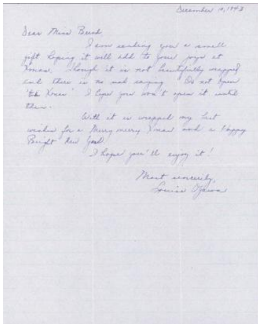 December 10, 1943
Dear Miss Breed
I am sending you a small
gift hoping it will add to your joys at
Xmas. Though it is not beautifully wrapped
and there is no seal saying "Do not open
'till Xmas" I hope you won't open it until
then.
With it is wrapped my best
wishes for a Merry merry Xmas and a Happy
Bright New Year!
I hope you'll enjoy it!
Most sincerely,
Louise Ogawa